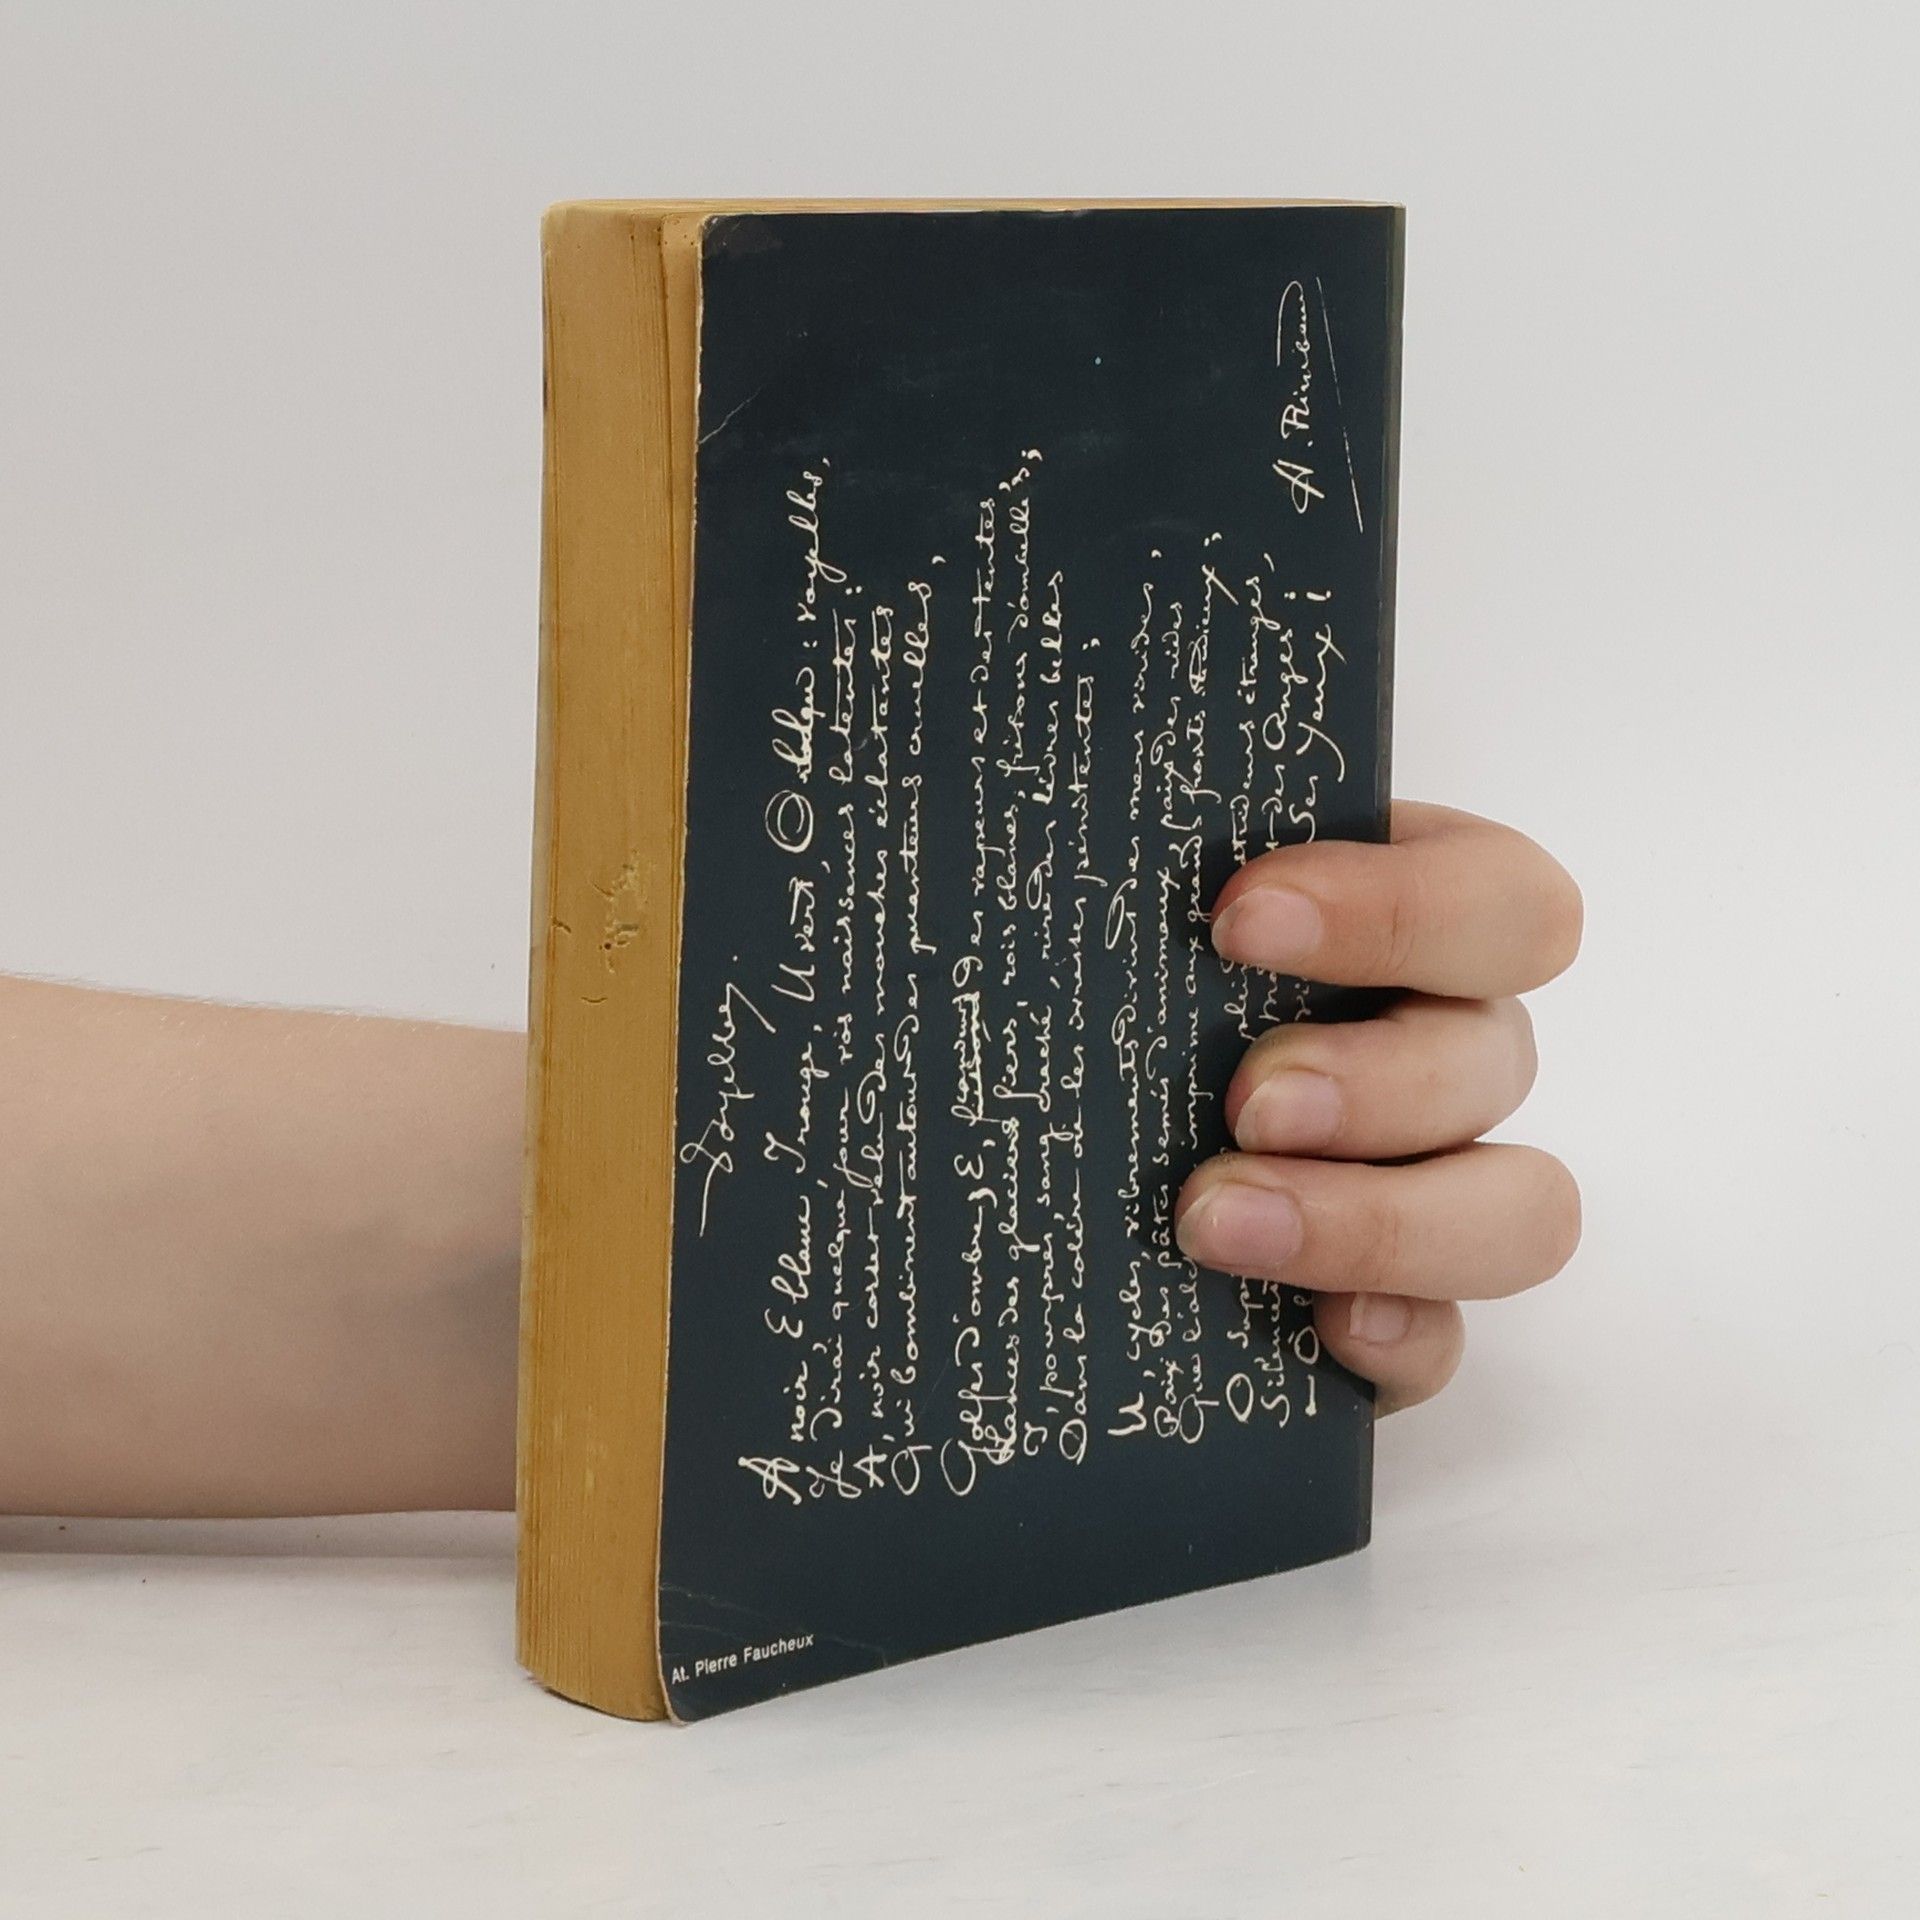 Voyelles.
A noir, E blanc, I rouge, U vert, O bleu : voyelles,
Je dirai quelque jour vos naissances latentes ;
A, noir corset velu des mouches éclatantes
Qui bombinent autour des puanteurs cruelles,
Golfes d'ombre ; E, frissons des vapeurs et des tentes,
des glaciers fiers, rois blancs, frissons d'ombelles ;
I, pourpres, sang craché, rire des lèvres belles
Dans la colère ou les ivresses pénitentes ;
U, cycles, vibrements divins des mers virides,
Paix des pâtis semés d'animaux, paix des rides
Que l'alc imprime aux grands fronts studieux ;
O, étranges,
Silences des Anges :
— O Ses Yeux !
A. Rimbaud
At. Pierre Faucheux